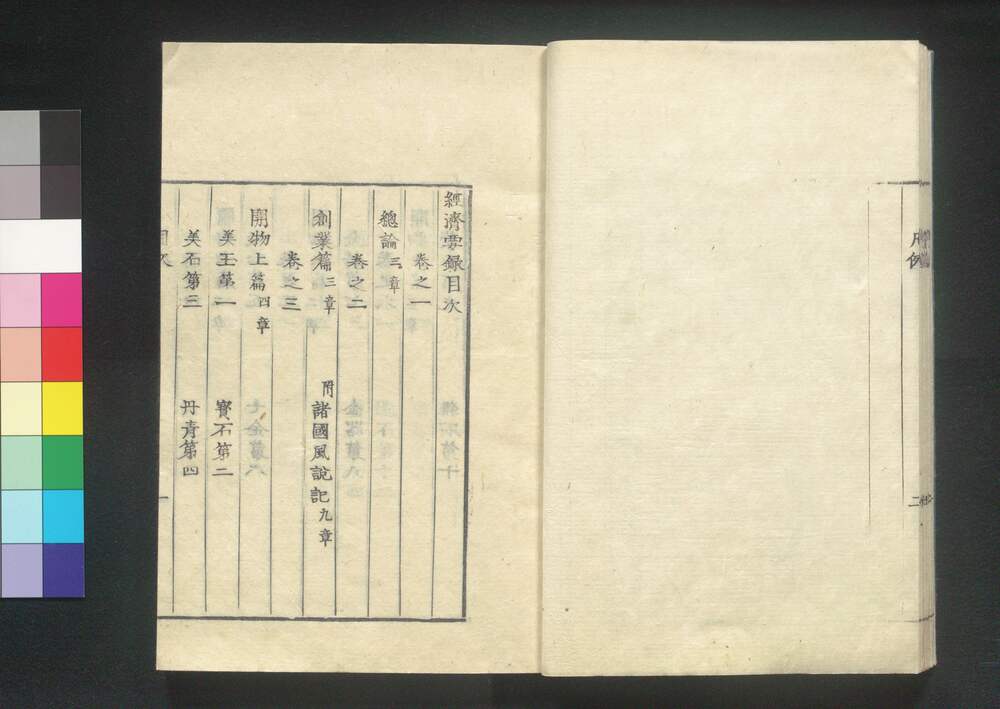 凡例
二
經濟要録目次
卷之一
總論三章
卷之二
創業篇三章 附諸國風說記九章
卷之三
開物上篇四章
美玉第一 寶石第二
美石第三 丹青第四
目次
一